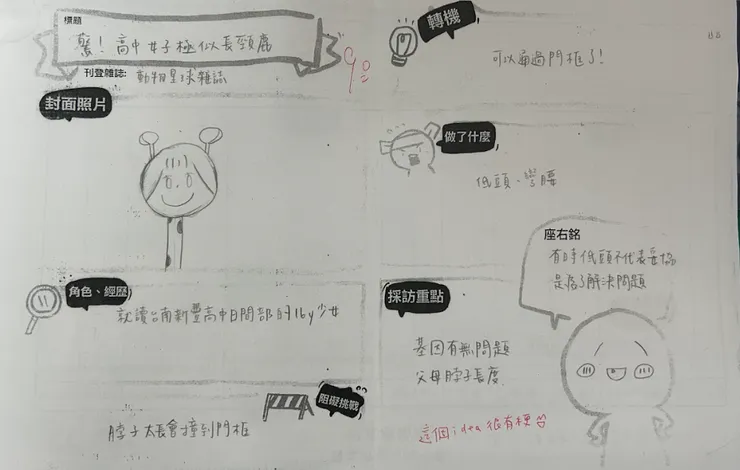 標題
驚！高中女子極似長頸鹿
刊登雜誌: 動物星球雜誌
90
封面照片
角色、經歷
就讀台南新豐高中日間部的16y少女
阻礙挑戰
脖子太長會撞到門框
轉機
可以通過門框了！
做了什麼
低頭、彎腰
座右銘
有時低頭不代表妥協
是為了解決問題
採訪重點
基因有無問題
父母脖子長度
這個idea很有梗